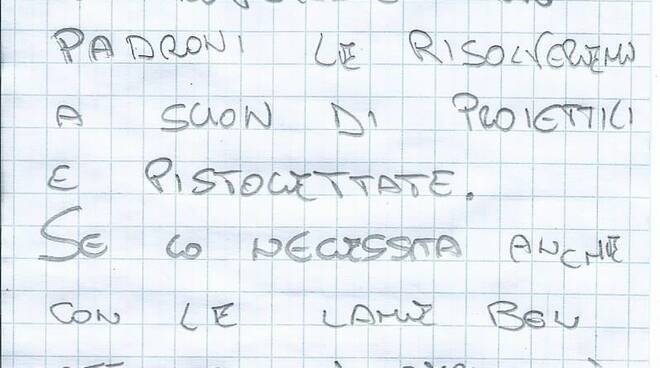 PADRONI LE RISOLVEREMO
A SUON DI PROIETTILI
E PISTOLETTATE.
SE LO NECESSITA ANCHE
CON LE LAME BEN